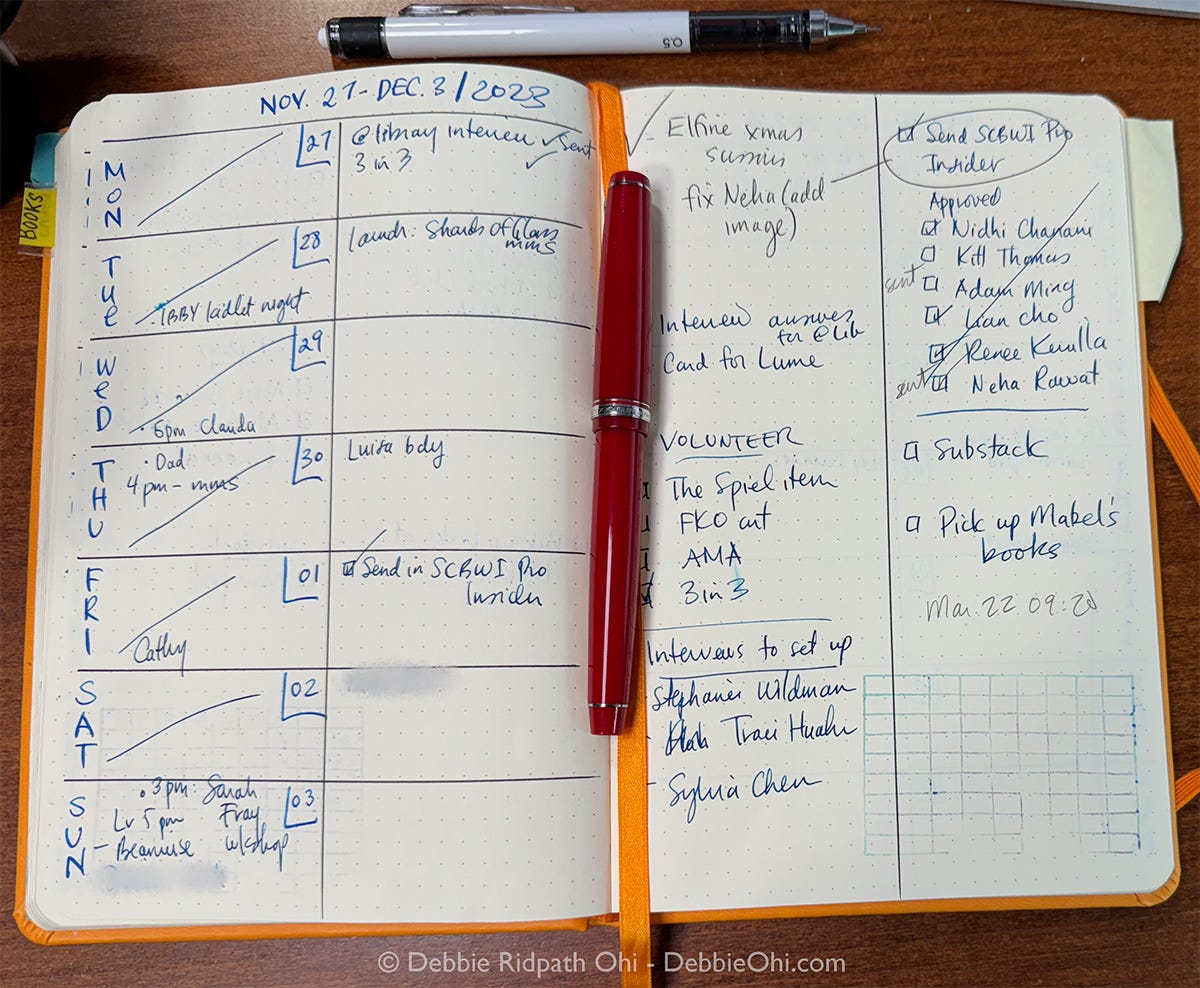 0.5
BOOKS
NOV. 27 - DEC. 3 / 2023
MON
27
@library interview ✓ sent
3 in 3 ✓
TUE
28
· IBBY ladlet night
Launch: Shards of Glass
mms
WED
29
· 6pm Claudia
THU
30
· Dad
4pm - mms
Luisa bday
FRI
01
Cathy
☑ Send in SCBWI Pro
Insider
SAT
02
SUN
03
· 3pm: Sarah
Lv 5 pm Fray
- Beamuse wkshop
✓ Elfine xmas
fix Neha (add
image)
Interview answers
for @Lib
Card for Lume
VOLUNTEER
The Spiel item
FKO art
AMA
3 in 3
Interviews to set up
Stephanie Wildman
- Traci Huahn
- Sylvia Chen
☑ Send SCBWI Pro
Insider
Approved
☑ Nidhi Chanani
☐ Kitt Thomas
sent ☐ Adam Ming
☑ Lian Cho
☑ Renee Kurilla
sent ☑ Neha Rawat
☐ Substack
☐ Pick up Mabel's
books
Mar. 22 09:20
© Debbie Ridpath Ohi - DebbieOhi.com